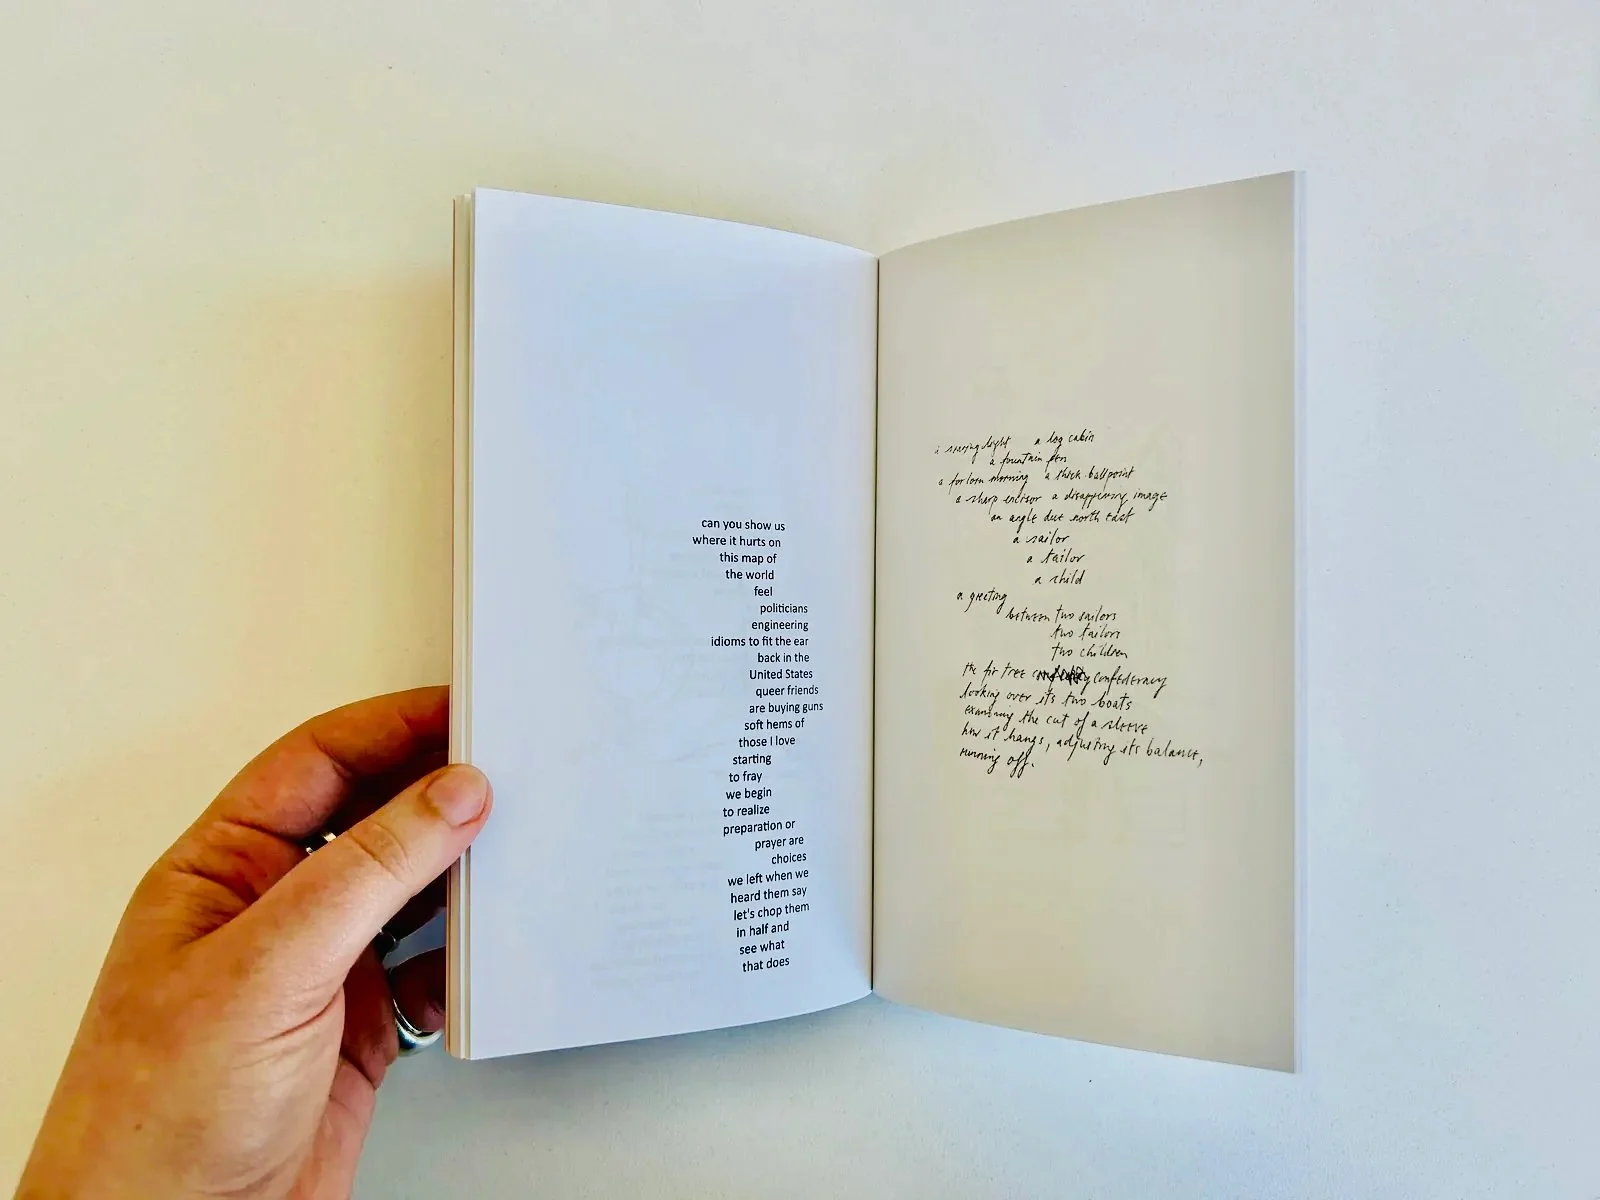 can you show us
where it hurts on
this map of
the world
feel
politicians
engineering
idioms to fit the ear
back in the
United States
queer friends
are buying guns
soft hems of
those I love
starting
to fray
we begin
to realize
preparation or
prayer are
choices
we left when we
heard them say
let's chop them
in half and
see what
that does
a light a log cabin
a fountain pen
a forlorn morning a thick ballpoint
a sharp incisor a disappearing image
an angle due north east
a sailor
a tailor
a child
a greeting
between two sailors
two tailors
two children
the fir tree confederacy
looking over its two boats
examining the cut of a sleeve
how it hangs, adjusting its balance,
running off.